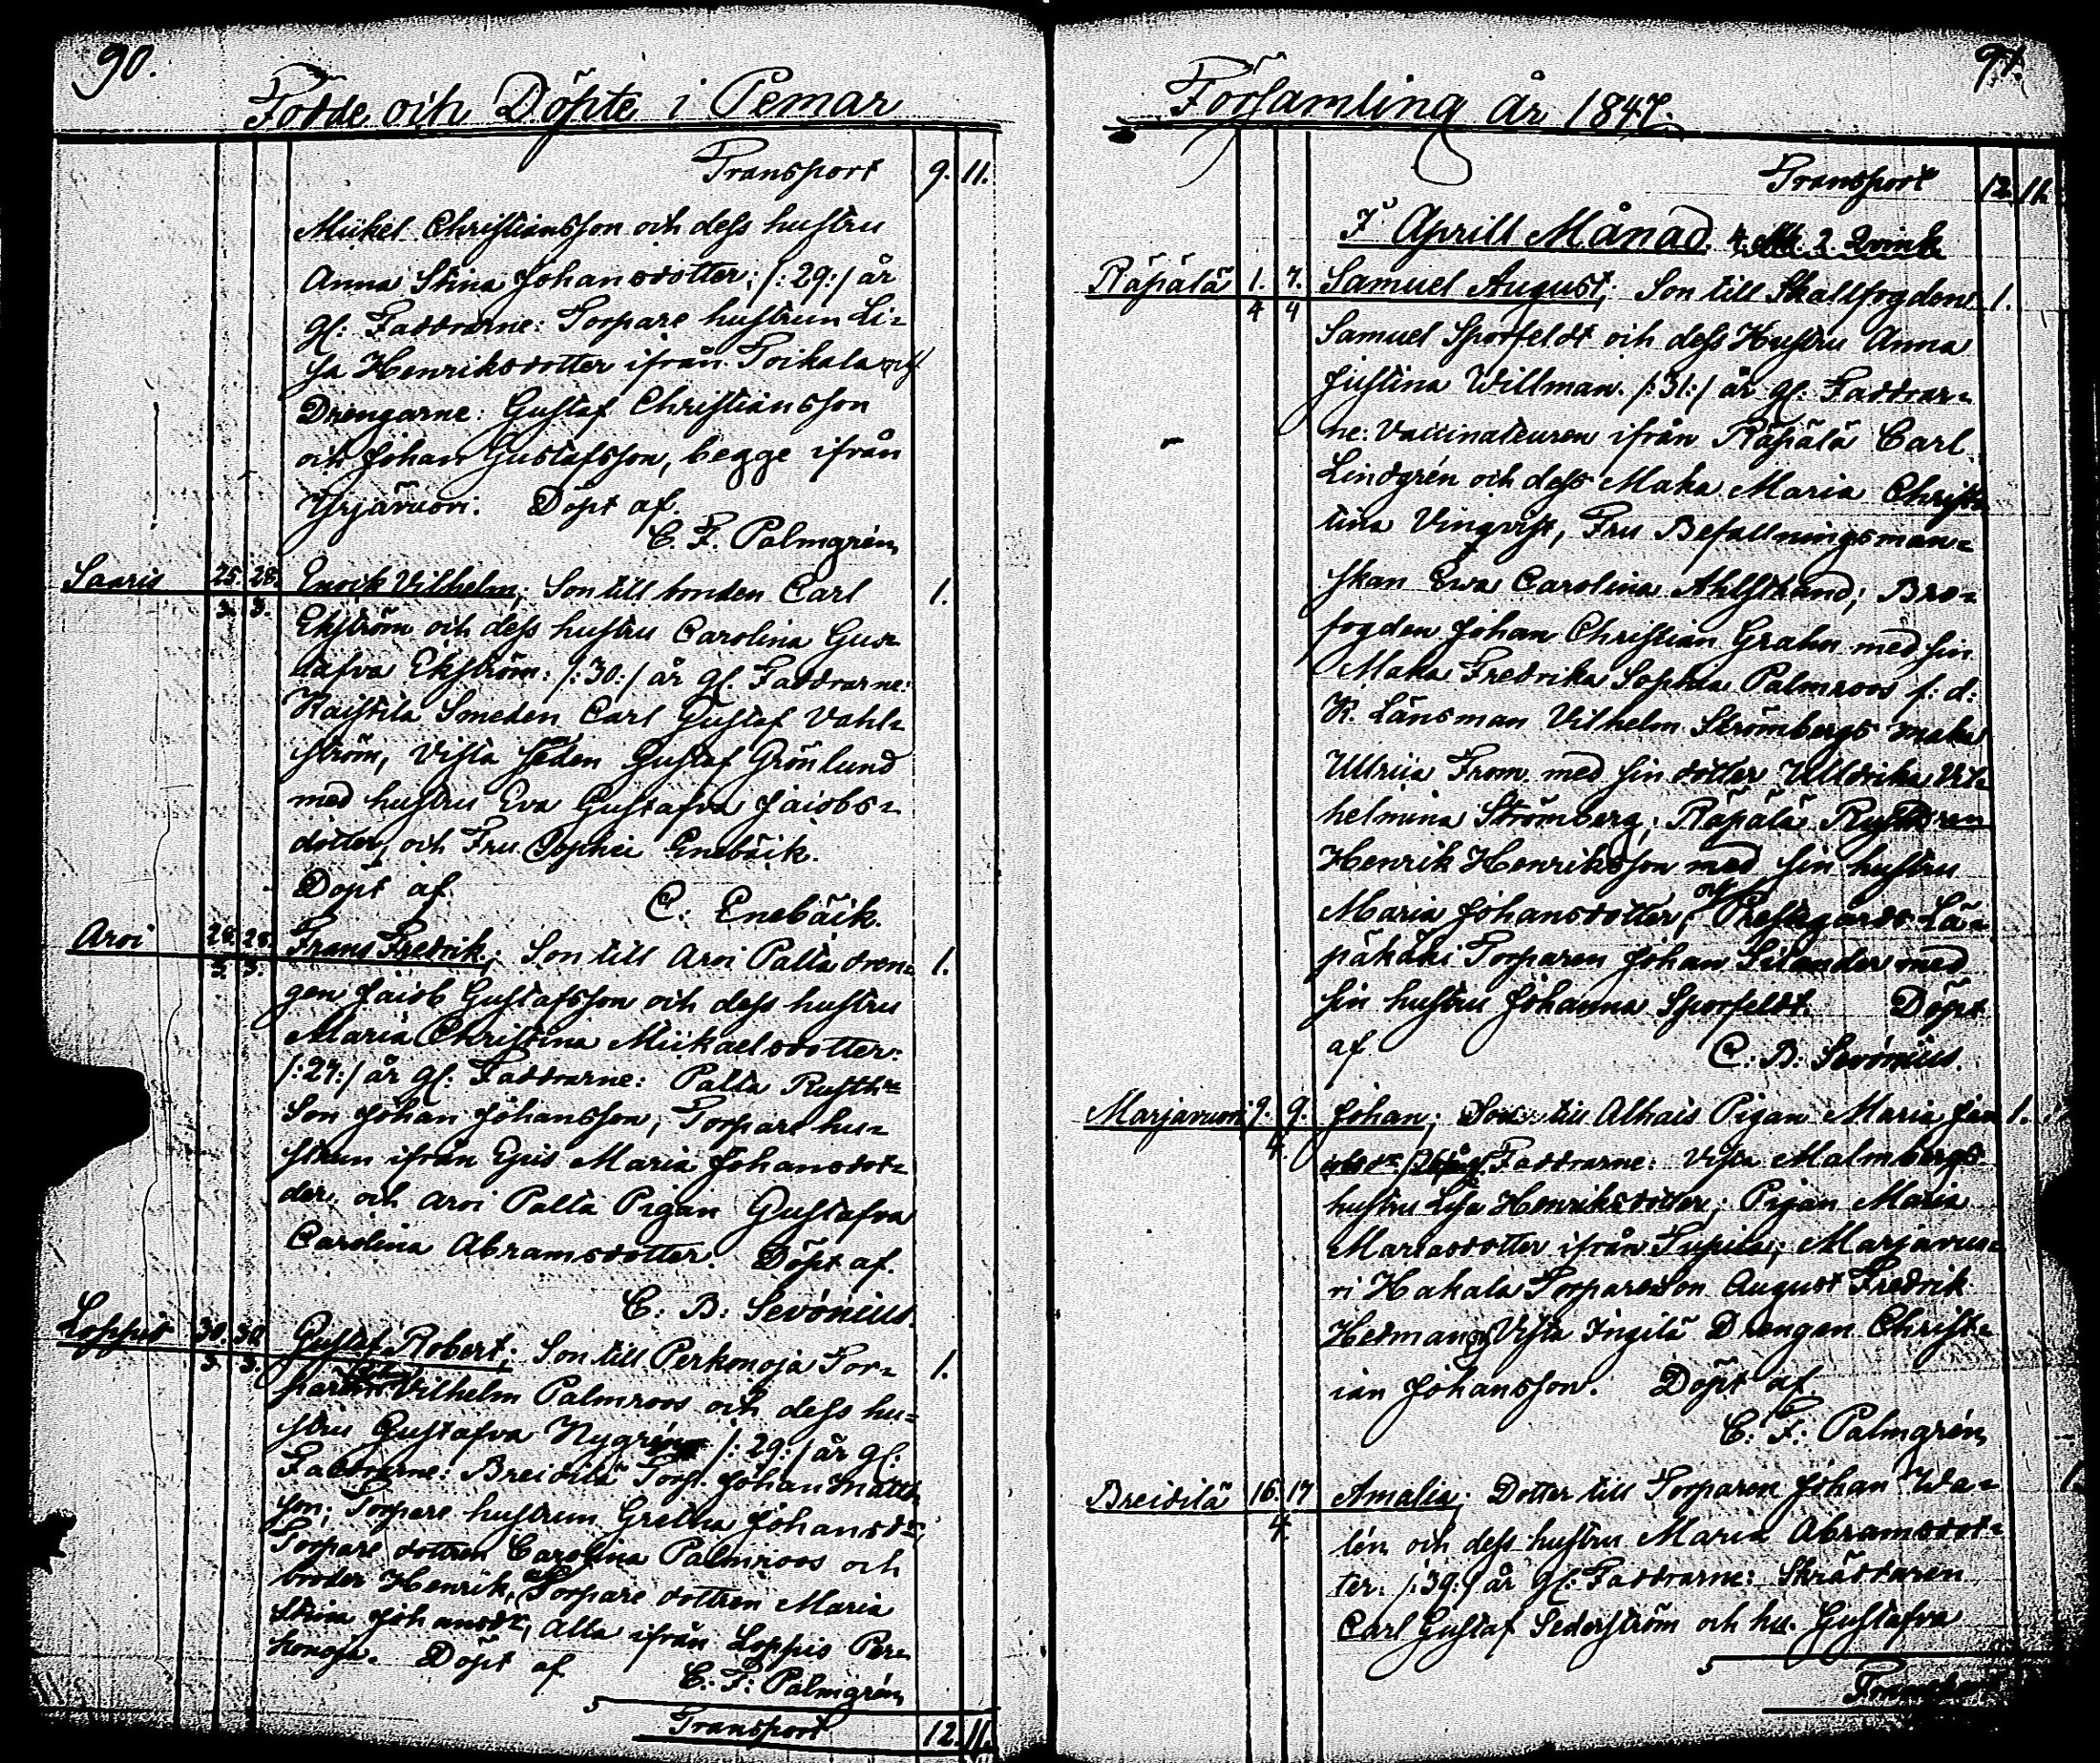 90.
Födde och Döpte i Pemar
Transport 9. 11.
Mickel Christiansson och dess hustru
Anna Stina Johansdotter; /: 29:/ år
gl: Faddrarne: Torpare hustrun Li-
sa Henriksdotter ifrån Toikala och
Drengarne: Gustaf Christiansson
och Johan Gustafsson, begge ifrån
Yrjävuori. Döpt af.
C. F. Palmgrén
Saaris 25. 28. Enock Vilhelm; Son till bonden Carl 1.
3. 3. Ekström och dess hustru Carolina Gus-
tafva Ekström: /: 30:/ år gl. Faddrarne:
Raistila Smeden Carl Gustaf Vahl-
ström, Vista Gustaf Grönlund
med hustru Eva Gustafva Jacobs-
dotter, och Fru Sophie Enebäck.
Döpt af C: Enebäck.
Aroi 24. 28. Frans Fredrik; Son till Aroi Palta dren- 1.
3. 3. gen Jacob Gustafsson och dess hustru
Maria Christina Mickaelsdotter:
/: 27:/ år gl: Faddrarne: Palta Rusth:
Son Johan Johansson, Torpare hu-
strun ifrån Epis Maria Johansdot-
der, och Aroi Palta Pigan Gustafva
Carolina Abramsdotter. Döpt af.
C: B: Sevónius.
Loppis 30. 30 Gustaf Robert; Son till Perkonoja Tor- 1.
3. 3. Vilhelm Palmroos och dess hu-
stru Gustafva Nygrén /: 29:/ år gl:
Faddrarne: Breidilä Torp. Johan Matts-
son; Torpare hustrun Gretha Johansdr,
Torpare dottren Carolina Palmroos och
broder Henrik, och Torpare dottren Maria
Stina Johansdr, Alla ifrån Loppis Per-
konoja. Döpt af
C: F: Palmgrén
Transport 12. 11.
91.
Församling År 1847.
Transport 12. 11.
I Aprill Månad. 4. Mk. 2 Qvink
Räpälä 1. 7. Samuel August; Son till Skallfogden 1.
4 4 Samuel Sporfeldt och dess Hustru Anna
Justina Willman. /: 31:/ år gl: Faddrar-
ne: Vaccinateuren ifrån Räpälä Carl
Lindgrén och dess Maka Maria Chris-
tina Vinqvist, Fru Befallningsman-
skan Ewa Carolina Ahlstrand; Bro-
fogden Johan Christian Grahn med sin
Maka Fredrika Sophia Palmroos f: d:
K. Länsman Vilhelm Strömbergs maka
Ulrica From med sin dotter Ulldrika Vil-
helmina Strömberg; Räpälä
Henrik Henriksson med sin hustru
Maria Johansdotter; och Prestegårds Lä-
päkäki Torparen Johan Silander med
sin hustru Johanna Sporfeldt. Döpt
af C: B: Sevónius.
Marjavuori 9. 9. Johan; Son till Alhais Pigan Maria Jac 1.
4. Faddrarne: Vista Malmbergs
hustru Lisa Henriksdotter; Pigan Maria
Mariasdotter ifrån Marjavuo-
ri Hakala Torpare Son August Fredrik
Hedman och Vista Ingilä Drengen Christ-
ian Johansson. Döpt af
C: F: Palmgrén
Breidilä 16. 17 Amalia; Dotter till Torparen Johan Wa- 1.
4. lén och dess hustru Maria Abramsdot-
ter. /: 39:/ år gl: Faddrarne: Skräddaren
Carl Gustaf Sederström och hu. Gustafva